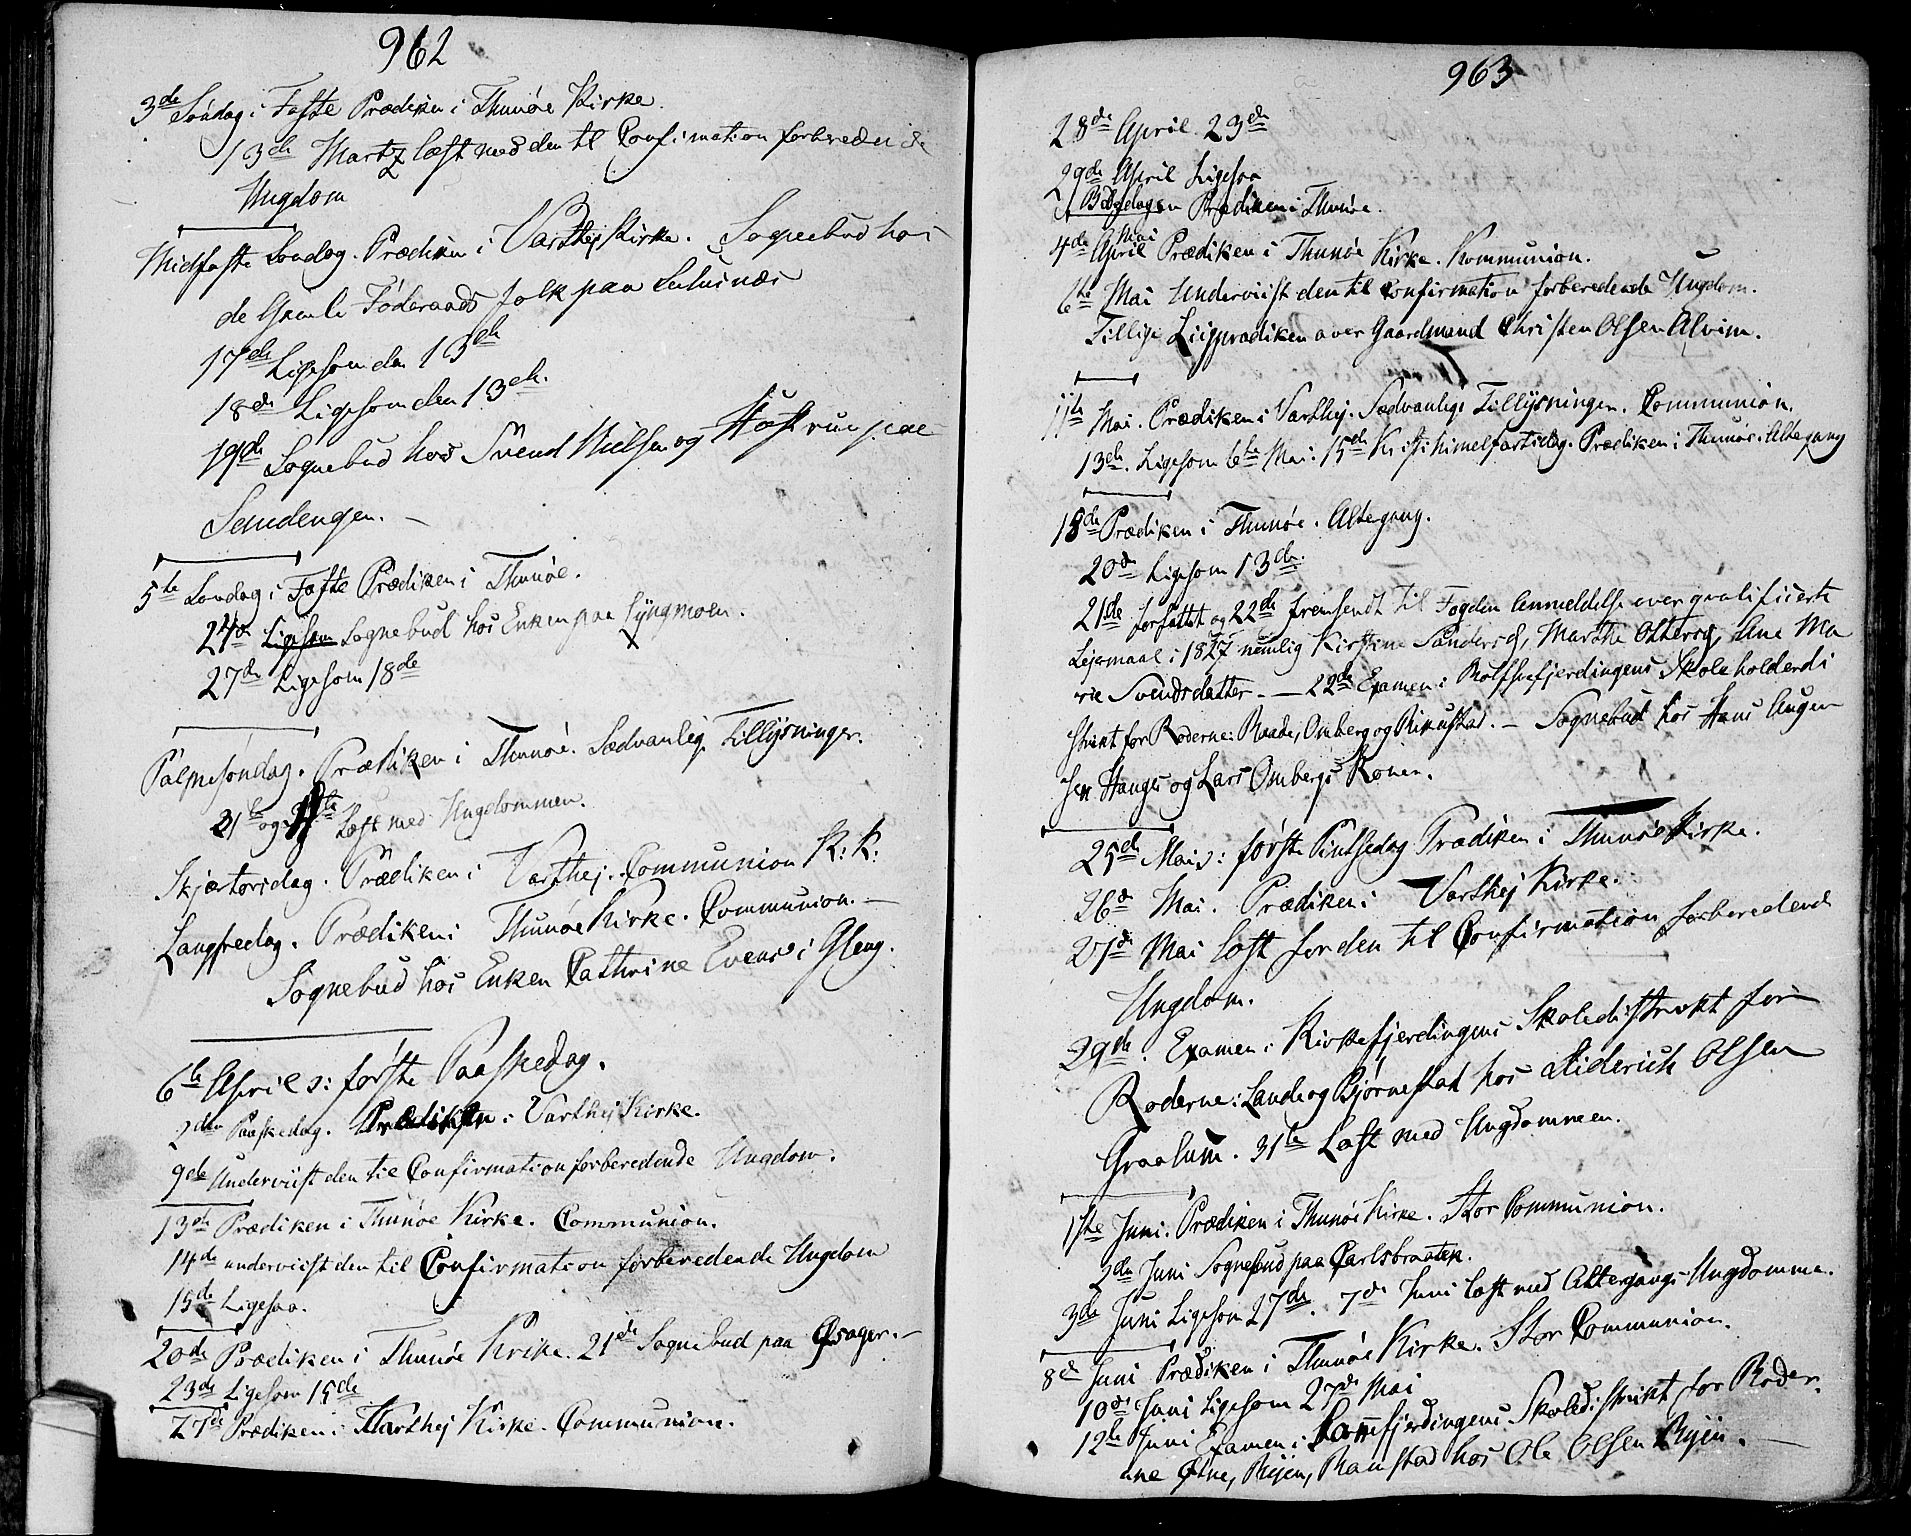 962
3de Søndag i Faste Prædiken i Thunøe Kirke.
13de Martz læst med den til Confirmation forberedende
Ungdom
Midfaste Søndag. Prædiken i Varthej Kirke. Sognebud hos
de Gamle Føderaads folk paa
17de Ligesom den 13de
18de Ligesom den 13de.
19de Sognebud hos Svend Nielsen og paa
Sandengen. —
5te Søndag i Faste Prædiken i Thunøe.
24de Ligesom Sognebud hos Enken paa Lyngmoen.
27de Ligesom 18de
Palmesøndag. Prædiken i Thunøe. Sædvanlig Tillysninger.
31te og Læst med Ungdommen.
Skjærtorsdag. Prædiken i Varthej. Communion K: K:
Langfredag. Prædiken i Thunøe Kirke. Communion. —
Sognebud hos Enken Cathrine Evens i Gleng.
6te April ɔ: første Paaskedag.
2den Paaskedag. Prædiken i Varthej Kirke.
9de Underviist den til Confirmation forberedende Ungdom.
13de Prædiken i Thunøe Kirke. Communion.
14de underviist den til Confirmation forberedende Ungdom
15de Ligesaa.
20de Prædiken i Thunøe Kirke. 21de Sognebud paa —
23de Ligesom 15de
27de Prædiken i Varthej Kirke. Communion.
963
28de April 23de
29de April Ligesaa
Bededagen Prædiken i Thunøe.
4de April Mai Prædiken i Thunøe Kirke. Kommunion.
6te Mai Underviist den til Confirmation forberedende Ungdom.
Tillige Liigprædiken over Gaardmand Christen Olsen Alvim.
11te Mai. Prædiken i Varthej. Sædvanlige Tillysninger. Communion.
13de. Ligesom 6te Mai. 15de Kristi himelfartsdag. Prædiken i Thunøe. Altergang
18de Prædiken i Thunøe. Altergang.
20de Ligesom 13de.
21de forfattet og 22de fremsendt til Fogden Anmeldelse over qvalificerte
Lejermaal i 1827 nemlig Kirstine Sandersd, Marthe Ottersd, Ane Ma
rie Svendsdatter. — 22de Examen i Rolfsøefjerdingens Skoleholderdi
strikt for Roderne: Raade, Omberg og Rikustad. — Sognebud hos Hans Augen
sen Hauges og Lars Ombergs Koner.
25de Mai ɔ: første Pintsedag Prædiken i Thunøe Kirke.
26de Mai. Prædiken i Varthej Kirke.
27de Mai læst for den til Confirmation forberedende
Ungdom.
29de. Examen i Kirkefjerdingens Skoledistrikt for
Roderne: Lande og Bjørnestad hos Diderich Olsen
Graalum. 31te Læst med Ungdommen.
1ste Juni. Prædiken i Thunøe Kirke. Stor Communion.
2den Juni Sognebud paa Carlsbraaten.
3de Juni Ligesom 27de. 7de Juni læst med Altergangs-Ungdomme.
8de Juni Prædiken i Thunøe Kirke. Stor Communion.
10de Juni Ligesom 27de Mai
12te Juni Examen i fjerdingens Skoledistrikt for Roder
ne Østne, Rejen, Ramstad hos Ole Olsen Rejen. —